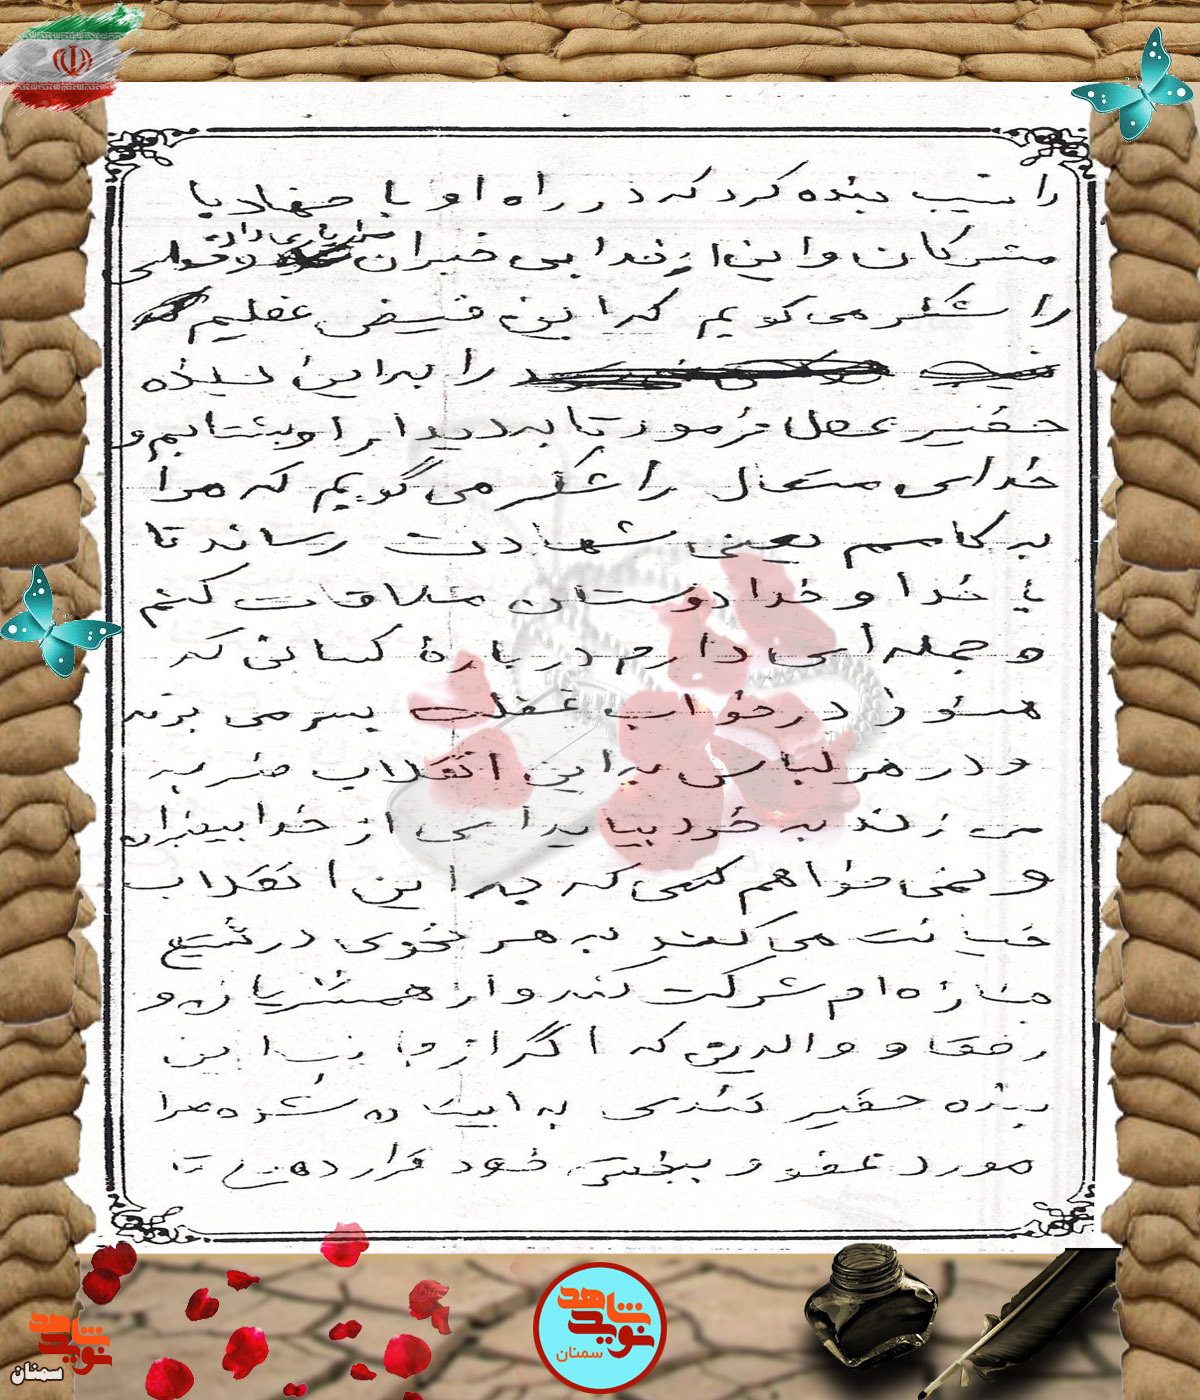 را نصیب بنده کرد که در راه او با جهاد با
مشرکان و این از خدا بی خبران مرا یاری داده و قولی
را شکر می گویم که این فیض عظیم
را به این بنده
حقیر عطا فرمود تا به دیدار او بشتابم و
خدای متعال را شکر می گویم که مرا
به کامم یعنی شهادت رساند تا
با خدا و خدا دوستان ملاقات کنم
و جمله ای دارم درباره کسانی که
هنوز در خواب غفلت بسر می برند
و در هر لباسی به این انقلاب ضربه
می زنند به خود بیایید ای از خدا بیخبران
و نمی خواهم کسی که به این انقلاب
خیانت می کنند به هر نحوی در تشییع
جنازه ام شرکت کند و از همشهریان و
رفقا و والدین که اگر از جانب این
بنده حقیر تندی به ایشان شده مرا
مورد عفو و بخشش خود قرار دهند تا
نوید شاهد
سمنان
نوید شاهد
سمنان